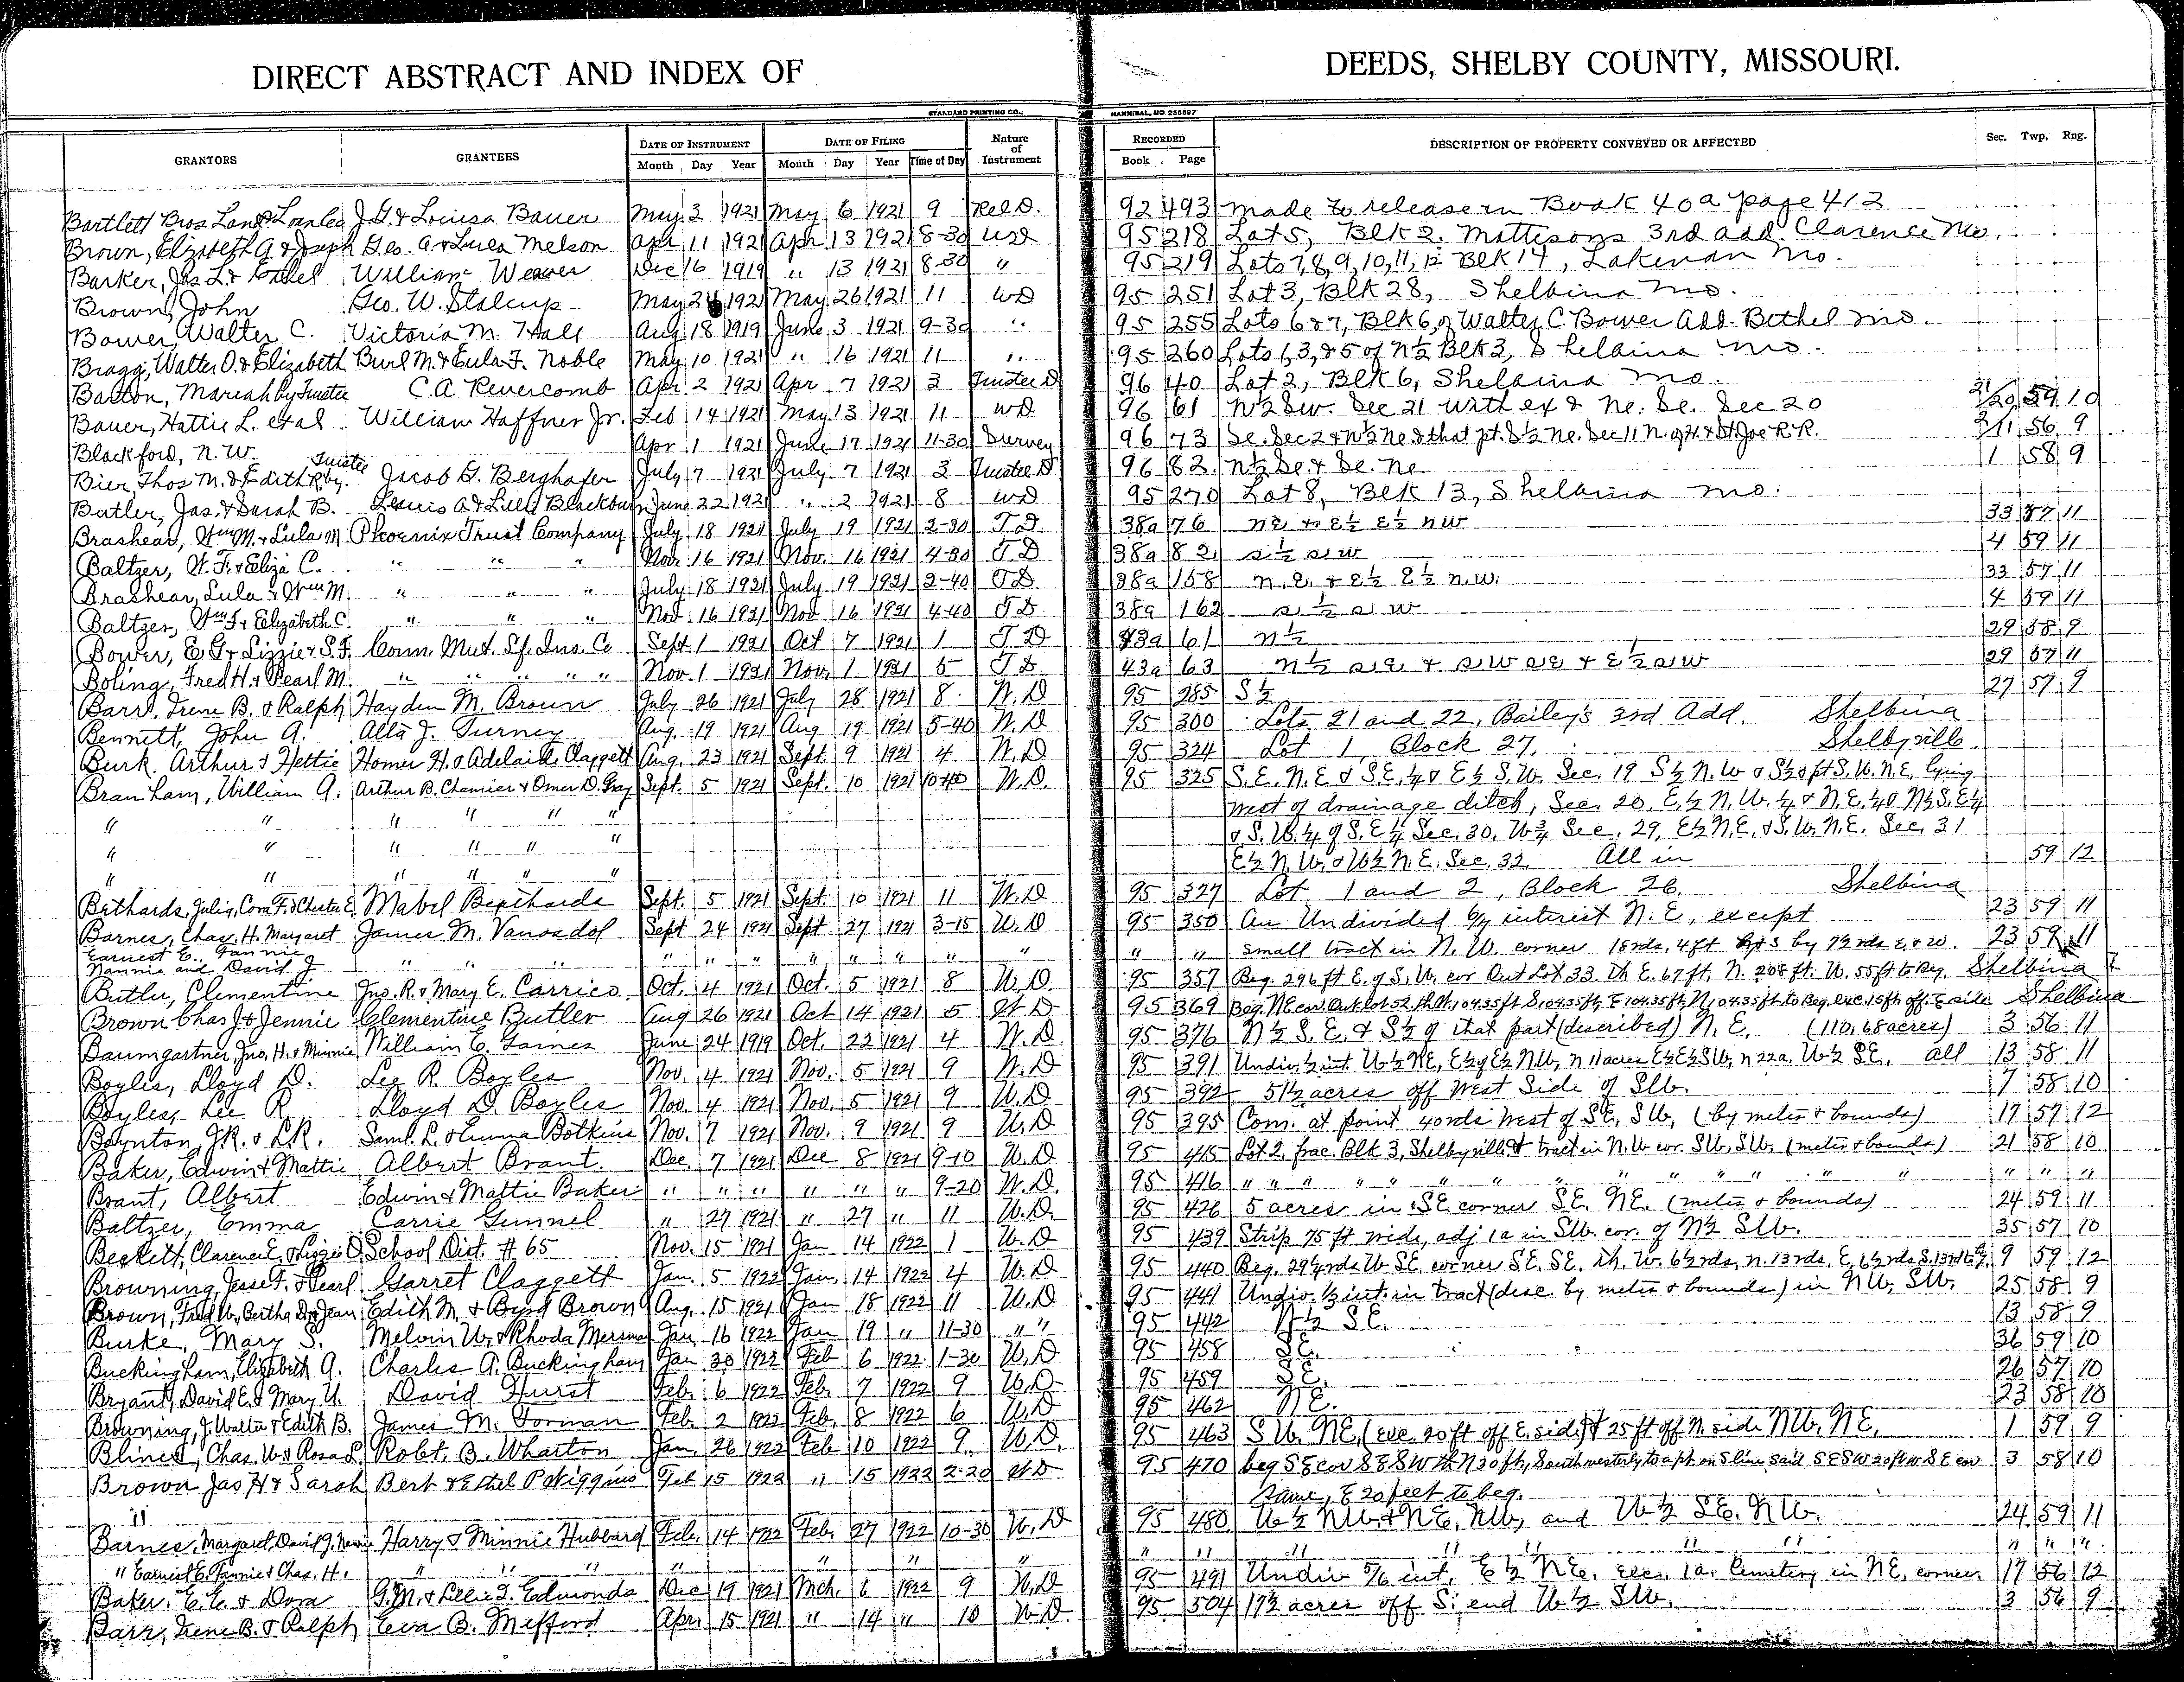 DIRECT ABSTRACT AND INDEX OF DEEDS, SHELBY COUNTY, MISSOURI.
STANDARD PRINTING CO., HANNIBAL, MO 258697
GRANTORS GRANTEES DATE OF INSTRUMENT Month Day Year DATE OF FILING Month Day Year Time of Day Nature of Instrument RECORDED Book Page DESCRIPTION OF PROPERTY CONVEYED OR AFFECTED Sec. Twp. Rng.
Bartlett Bros Land & Loan Co J.G. & Louisa Bauer May 3 1921 May 6 1921 9 Rel D. 92 493 Made to release in Book 40a page 412
Brown, Elizabeth A. & Joseph Geo. A. & Luca Melson Apr 11 1921 Apr 13 1921 8-30 WD 95 218 Lot 5, Blk 2. Mattisons 3rd add. Clarence Mo.
Barker, Jas L. & Ethel William Weaver Dec 16 1919 " 13 1921 8-30 " 95 219 Lots 7, 8, 9, 10, 11, 12 Blk 14, Lakenan Mo.
Brown, John Geo. W. Stalcup May 24 1921 May 26 1921 11 WD 95 251 Lot 3, Blk 28, Shelbina Mo.
Bower, Walter C. Victoria M. Hall Aug 18 1919 June 3 1921 9-30 " 95 255 Lots 6 & 7, Blk 6, of Walter C. Bower Add. Bethel Mo.
Bragg, Walter O. & Elizabeth Burl M. & Eula F. Noble May 10 1921 " 16 1921 11 " 95 260 Lots 1, 3, & 5 of N½ Blk 3, Shelbina Mo.
Barton, Mariah by Trustee C.A. Revercomb Apr 2 1921 Apr 7 1921 3 Trustee D 96 40 Lot 2, Blk 6, Shelbina Mo.
Bauer, Hattie L. et al William Haffner Jr. Feb 14 1921 May 13 1921 11 WD 96 61 N½ Sw. Sec 21 with ex & Ne. Se. Sec 20 21/20 59 10
Blackford, N. W. Apr 1 1921 June 17 1921 11-30 Survey 96 73 Se. Sec 2 & N½ Ne & that pt. S½ Ne. Sec 11 N. of H. & St Joe R.R. 2/11 56 9
Bier, Thos M. & Edith R. by Trustee Jacob G. Berghafer July 7 1921 July 7 1921 2 Trustee D 96 82 N½ Se & Se. Ne 1 58 9
Butler, Jas. & Sarah B. Lewis A & Lula Blackburn June 22 1921 " 2 1921 8 WD 95 270 Lot 8, Blk 13, Shelbina Mo.
Brashear, Wm M. & Lula M Phoenix Trust Company July 18 1921 July 19 1921 2-30 T D 38a 76 NE & E½ E½ NW 33 57 11
Baltzer, W. F. & Eliza C. " " " Nov. 16 1921 Nov. 16 1921 4-30 T D 38a 82 S½ SW 4 59 11
Brashear, Lula & Wm M. " " " July 18 1921 July 19 1921 2-40 TD 38a 158 N.E. & E½ E½ N.W. 33 57 11
Baltzer, Wm F. & Elizabeth C. " " " Nov 16 1921 Nov 16 1921 4-40 T D 38a 162 S½ SW 4 59 11
Bower, E G & Lizzie & S.F. Conn. Mut. Lf. Ins. Co Sept 1 1921 Oct 7 1921 1 T D 43a 61 N½ 29 58 9
Boling, Fred H. & Pearl M. " " " " " Nov 1 1921 Nov. 1 1921 5 T D 43a 63 N½ SE & SW SE & E½ SW 29 57 11
Barr, Irene B. & Ralph Hayden M. Brown July 26 1921 July 28 1921 8 W. D 95 285 S½ 27 57 9
Bennett, John A. Alta J. Turney Aug. 19 1921 Aug 19 1921 5-40 W. D 95 300 Lots 21 and 22, Bailey's 3rd Add. Shelbina
Burk, Arthur & Hettie Homer H. & Adelaide Claggett Aug. 23 1921 Sept. 9 1921 4 W. D 95 324 Lot 1 Block 27, Shelbyville
Branham, William A. Arthur B. Chamier & Omer D. Gray Sept. 5 1921 Sept. 10 1921 10-40 W. D. 95 325 S.E. N.E & S.E. ¼ & E½ S.W. Sec. 19 S½ N.W & S½ of pt S.W. N.E. lying
" " " " " " West of drainage ditch, Sec. 20, E.½ N.W. ¼ & N.E. ¼ & N½ S.E¼
" " " " " " & S.W. ¼ of S.E ¼ Sec. 30, W¾ Sec. 29, E½ N.E. & S.W. N.E. Sec. 31
" " " " " " E½ N.W. & W½ N.E. Sec. 32 All in 59 12
Bethards, Julia, Cora F. & Chester E. Mabel Bethards Sept. 5 1921 Sept. 10 1921 11 W. D 95 327 Lot 1 and 2, Block 26. Shelbina
Barnes, Chas. H. Margaret James M. Vanosdol Sept 24 1921 Sept 27 1921 3-15 W. D 95 350 An Undivided 6/7 interest N.E., except 23 59 11
Earnest E., Fannie, Nannie and David J " " " " " " " " " " " " Small tract in N.W. corner 18 rds. 4 ft N & S by 7½ rds E. & W. 23 59 11
Butler, Clementine Jno. R. & Mary E. Carrico Oct. 4 1921 Oct. 5 1921 8 W. D 95 357 Beg. 296 ft E. of S.W. cor Out Lot 33. th E. 67 ft, N. 208 ft. W. 55 ft to Beg. Shelbina
Brown Chas J & Jennie Clementine Butler Aug 26 1921 Oct 14 1921 5 W D 95 369 Beg. NE cor. Out lot 52, th W, 104.35 ft S, 104.35 ft, E 104.35 ft, N, 104.35 ft to Beg. exc 15 ft off E side Shelbina
Baumgartner, Jno. H. & Minnie William E. James June 24 1919 Oct. 22 1921 4 W. D 95 376 N½ S.E. & S½ of that part (described) N.E. (110.68 acres) 3 56 11
Boyles, Lloyd D. Lee R. Boyles Nov. 4 1921 Nov. 5 1921 9 W. D 95 391 Undiv. ½ int. W½ NE, E½ of E½ NW, N 11 acres E½ E½ SW, N 22 a. W½ SE. all 13 58 11
Boyles, Lee R. Lloyd D. Boyles Nov. 4 1921 Nov. 5 1921 9 W. D 95 392 51½ acres off West Side of SW. 7 58 10
Boynton, J.R. & L.R. Saml. L. & Emma Botkins Nov. 7 1921 Nov. 9 1921 9 W. D 95 395 Com. at point 40 rds West of SE. SW, (by metes & bounds) 17 57 12
Baker, Edwin & Mattie Albert Brant. Dec. 7 1921 Dec 8 1921 9-10 W. D 95 415 Lot 2, frac. Blk 3, Shelbyville & tract in N.W cor. SW, SW. (metes & bounds) 21 58 10
Brant, Albert Edwin & Mattie Baker " " " " " " 9-20 W. D. 95 416 " " " " " " " " " " " " "
Baltzer, Emma Carrie Gunnel " 27 1921 " 27 " 11 W. D. 95 426 5 acres in SE corner SE. NE. (metes & bounds) 24 59 11
Beckett, Clarence E. & Lizzie O School Dist. # 65 Nov. 15 1921 Jan 14 1922 1 W. D 95 439 Strip 75 ft wide, adj 1a in SW. cor. of N½ SW. 35 57 10
Browning, Jesse F. & Pearl Garret Claggett Jan. 5 1922 Jan. 14 1922 4 W. D 95 440 Beg. 29¼ rds W. SE. corner SE. SE. th. W. 6½ rds, N. 13 rds, E. 6½ rds S. 13 rds 9 59 12
Brown, Fred W., Bertha D. & Jean Edith M. & Byrd Brown Aug. 15 1921 Jan 18 1922 11 W. D 95 441 Undiv. ½ int. in tract (desc. by metes & bounds) in NW, SW. 25 58 9
Burke, Mary S. Melvin W. & Rhoda Mersman Jan. 16 1922 Jan 19 " 11-30 " " 95 442 N½ SE. 13 58 9
Buckingham, Elizabeth A. Charles A. Buckingham Jan 30 1922 Feb 6 1922 1-30 W. D 95 458 SE. 36 59 10
Bryant, David E. & Mary U. David Hurst Feb. 6 1922 Feb. 7 1922 9 W. D 95 459 SE. 26 57 10
Browning, J. Walter & Edith B. James M. Forman Feb. 2 1922 Feb. 8 1922 6 W. D 95 462 NE. 23 58 10
Blines, Chas. W. & Rosa L Robt. B. Wharton Jan. 26 1922 Feb 10 1922 9 W. D. 95 463 SW. NE, (exc. 20 ft off E. side) & 25 ft off N. side NW. NE. 1 59 9
Brown Jas. H & Sarah Bert & Ethel P Wiggins Feb 15 1922 " 15 1922 2-20 W D 95 470 beg SE cor SE SW th N 30 ft, Southwesterly to a pt. on S line said SE SW 20 ft W SE cor 3 58 10
" Same, E 20 feet to beg.
Barnes, Margaret, David J, Nannie Harry & Minnie Hubbard Feb. 14 1922 Feb. 27 1922 10-30 W. D 95 480 W½ NW. & NE, NW, and W½ SE. NW. 24 59 11
" Earnest E. Fannie & Chas. H. " " " " " " " " " " " " " " " " "
Baker, E. E. & Dora G.M. & Lellie F. Edmonds Dec 19 1921 Mch. 6 1922 9 W. D 95 491 Undiv 5/6 int. E½ NE. exc. 1a. Cemetery in NE. corner 17 56 12
Barr, Irene B. & Ralph Eva B. Mefford Apr. 15 1921 " 14 " 10 W. D 95 504 17½ acres off S. end W½ SW. 3 56 9